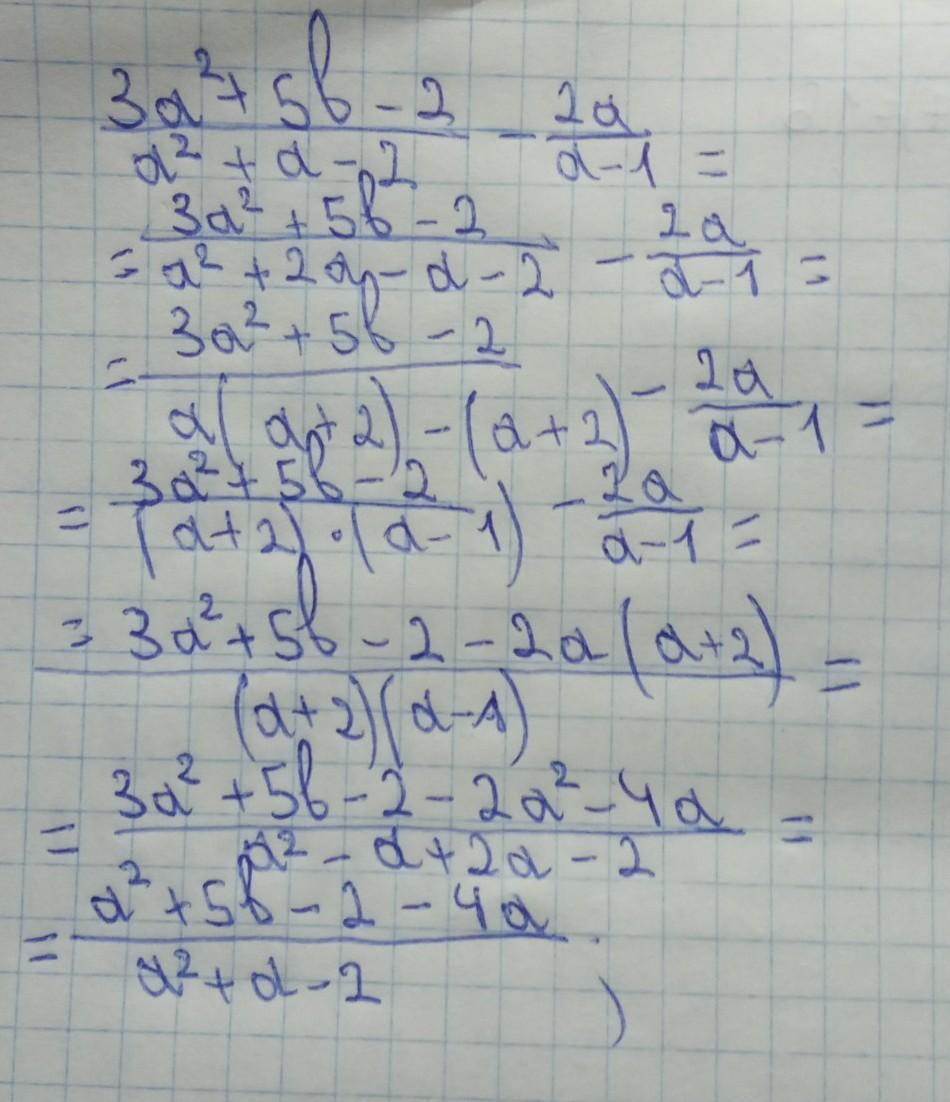 (3a² + 5b - 2)/(a² + a - 2) - 2a/(a-1) =
= (3a² + 5b - 2)/(a² + 2a - a - 2) - 2a/(a-1) =
= (3a² + 5b - 2)/(a(a+2) - (a+2)) - 2a/(a-1) =
= (3a² + 5b - 2)/((a+2)·(a-1)) - 2a/(a-1) =
= (3a² + 5b - 2 - 2a(a+2))/((a+2)(a-1)) =
= (3a² + 5b - 2 - 2a² - 4a)/(a² - a + 2a - 2) =
= (a² + 5b - 2 - 4a)/(a² + a - 2) .
)